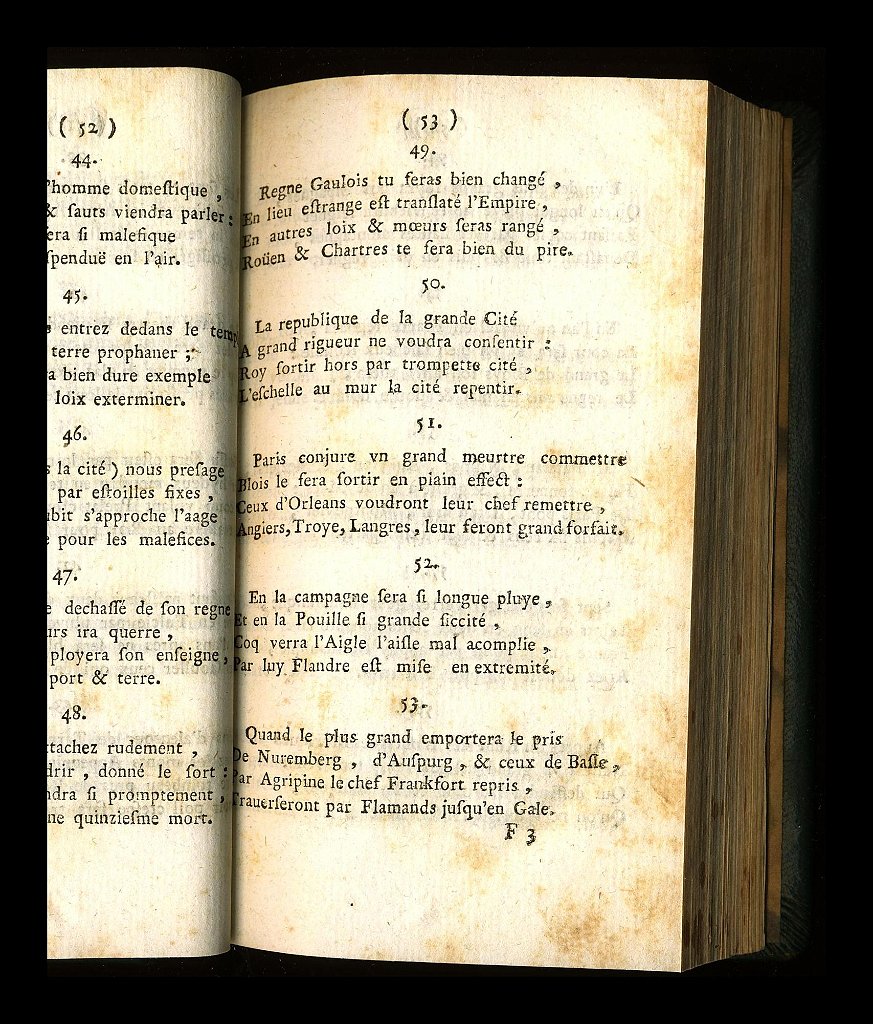 ( 52 )
44.
'homme domeſtique ,
& ſauts viendra parler :
ſera ſi malefique
ſpenduë en l'air.
45.
entrez dedans le temp
terre prophaner ;
bien dure exemple
loix exterminer.
46.
la cité ) nous preſage
par eſtoilles fixes ,
s'approche l'aage
pour les malefices.
47.
dechaſſé de ſon regne
ira querre ,
ployera ſon enſeigne,
port & terre.
48.
tachez rudement ,
drir , donné le ſort :
ndra ſi promptement ,
ne quinzieſme mort.
( 53 )
49.
Regne Gaulois tu ſeras bien changé ,
En lieu eſtrange eſt tranſlaté l'Empire ,
En autres loix & mœurs ſeras rangé ,
Roüen & Chartres te fera bien du pire.
50.
La republique de la grande Cité
A grand rigueur ne voudra conſentir :
Roy ſortir hors par trompette cité ,
L'eſchelle au mur la cité repentir.
51.
Paris conjure vn grand meurtre commettre
Blois le fera ſortir en plain effect :
Ceux d'Orleans voudront leur chef remettre ,
Angiers, Troye, Langres, leur feront grand forfait.
52.
En la campagne ſera ſi longue pluye ,
Et en la Pouille ſi grande ſiccité ,
Coq verra l'Aigle l'aiſle mal acomplie ,
Par luy Flandre eſt miſe en extremité.
53.
Quand le plus grand emportera le pris
De Nuremberg , d'Auſpurg , & ceux de Baſle ,
Par Agripine le chef Frankfort repris ,
Trauerſeront par Flamands juſqu'en Gale.
F 3